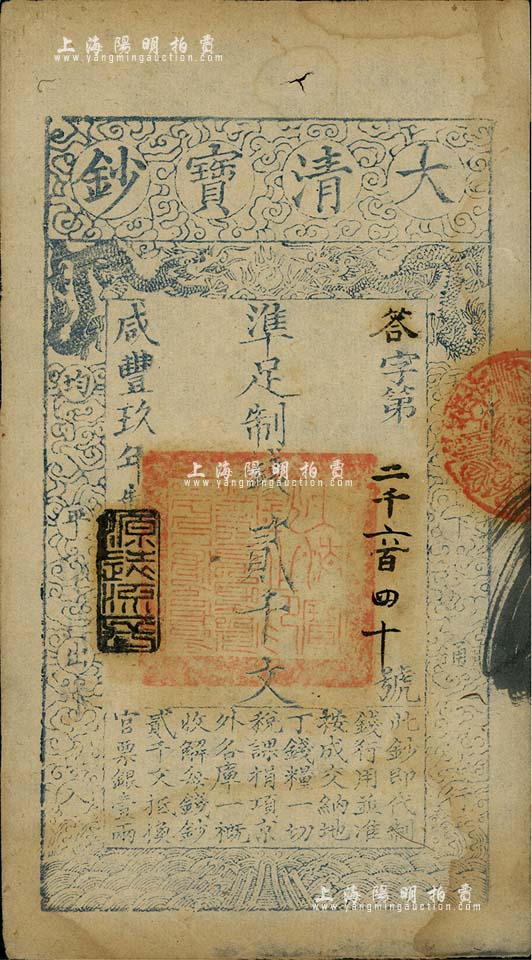 上海陽明拍賣
www.yangmingauction.com
大清寶鈔
答字第二千六百四十號
準足制錢貳千文
咸豐玖年
均平
下
用
源遠流長
上海陽明拍賣
www.yangmingauction.com
此鈔即代制
錢行用並准
按成交納地
丁錢糧一切
稅課捐項京
外各庫一概
收解每錢鈔
貳千文抵換
官票銀壹兩
上海陽明拍賣
www.yangmingauction.com